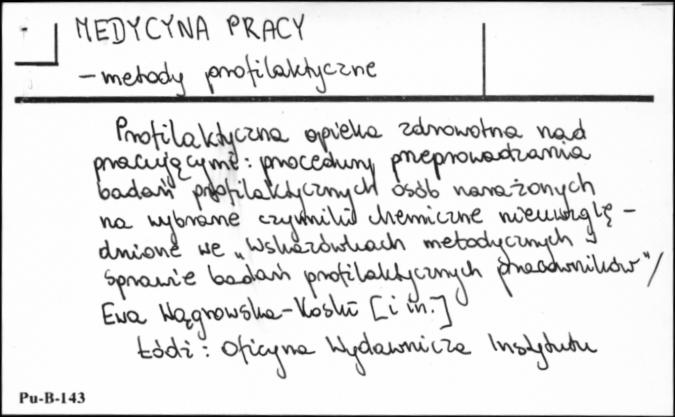 MEDYCYNA PRACY
– metody profilaktyczne
Profilaktyczna opieka zdrowotna nad
pracującymi: procedury przeprowadzania
badań profilaktycznych osób narażonych
na wybrane czynniki chemiczne nieuwzglę-
dnione we „Wskazówkach metodycznych w
sprawie badań profilaktycznych pracowników"/
Ewa Wągrowska-Koski [i in.]
Łódź : Oficyna Wydawnicza Instytutu
Pu-B-143